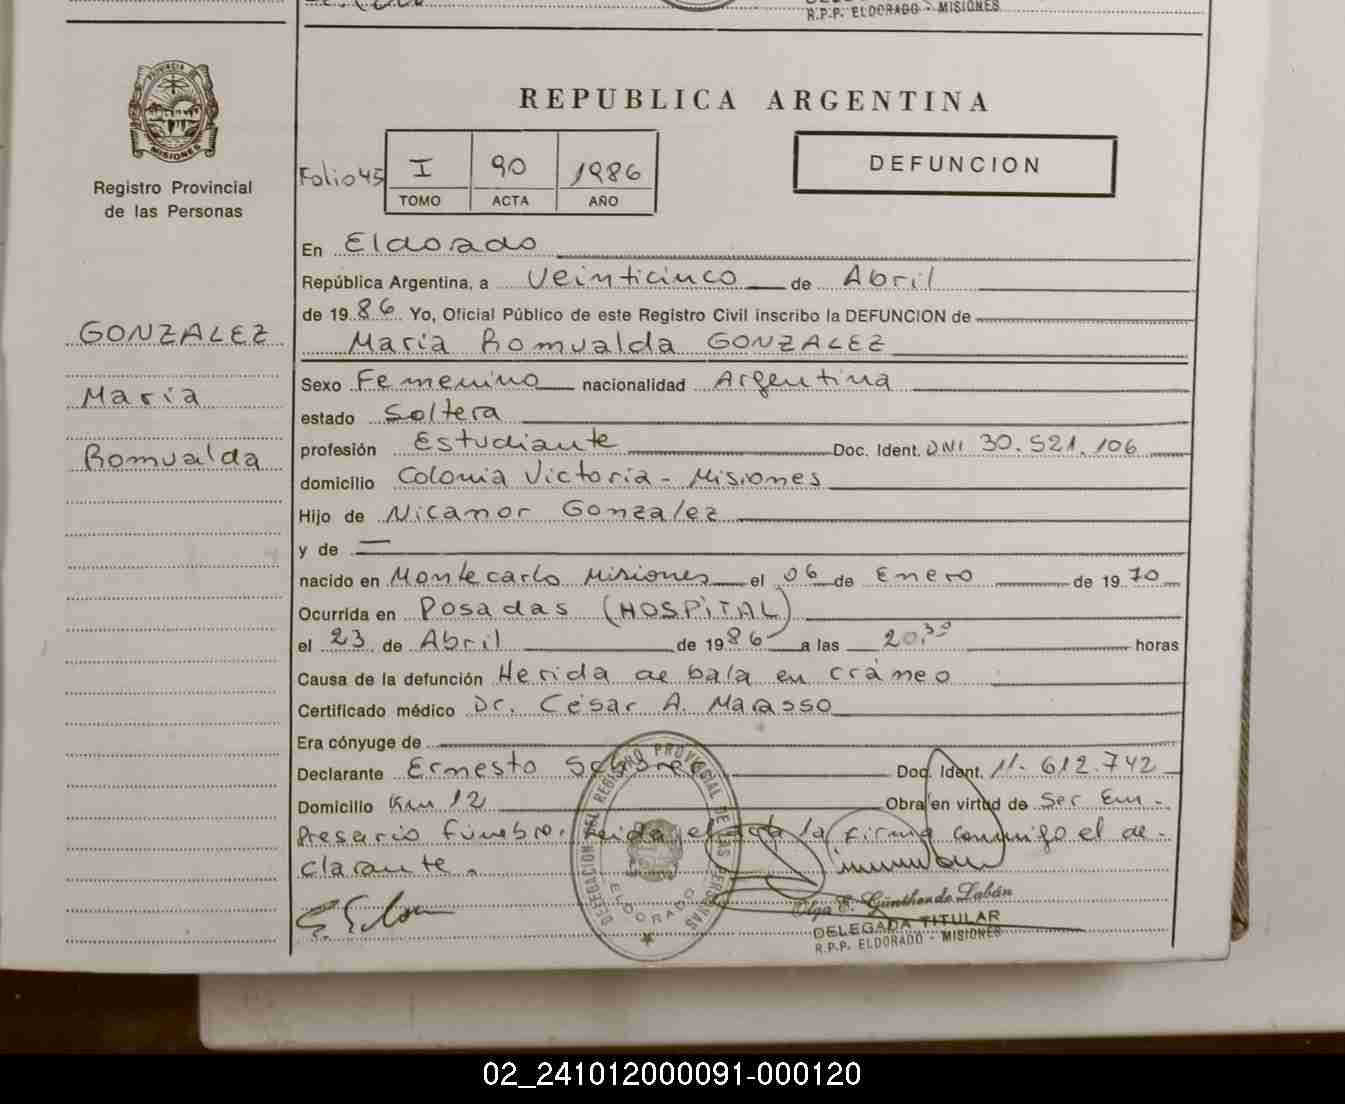 R.P.P. ELDORADO - MISIONES
PROVINCIA DE
MISIONES
Registro Provincial
de las Personas
GONZALEZ
Maria
Romualda
REPUBLICA ARGENTINA
Folio 45 I 90 1986
TOMO ACTA AÑO
DEFUNCION
En Eldorado
República Argentina, a Veinticinco de Abril
de 1986 Yo, Oficial Público de este Registro Civil inscribo la DEFUNCION de
Maria Romualda GONZALEZ
Sexo Femenino nacionalidad Argentina
estado Soltera
profesión Estudiante Doc. Ident. DNI 30.521.106
domicilio Colonia Victoria - Misiones
Hijo de Nicanor Gonzalez
y de —
nacido en Montecarlo Misiones el 06 de Enero de 1970
Ocurrida en Posadas (HOSPITAL)
el 23 de Abril de 1986 a las 20,30 horas
Causa de la defunción Herida de bala en cráneo
Certificado médico Dr. César A. Marasso
Era cónyuge de
Declarante Ernesto Doc. Ident. 11.612.742
Domicilio Km 12 Obra en virtud de Ser Em-
presario Fúnebre. Leida el acta la firma conmigo el de-
clarante.
DELEGACION DEL REGISTRO PROVINCIAL DE LAS PERSONAS
ELDORADO
Olga E. Günther de Labán
DELEGADA TITULAR
R.P.P. ELDORADO - MISIONES
02_241012000091-000120